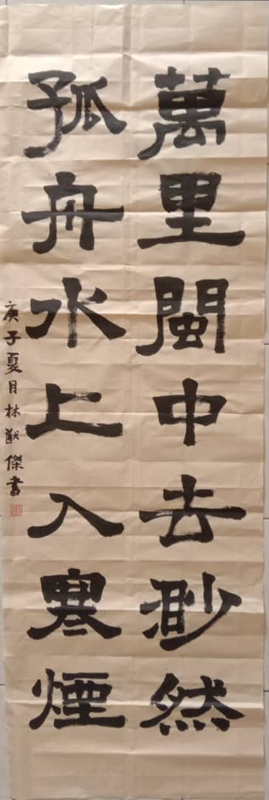 萬里閩中去渺然
孤舟水上入寒煙
庚子夏月林猷傑書